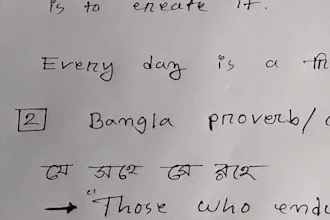 is to create it.
Every day is a
2 Bangla proverb/
যে সহে সে রহে
→ "Those who